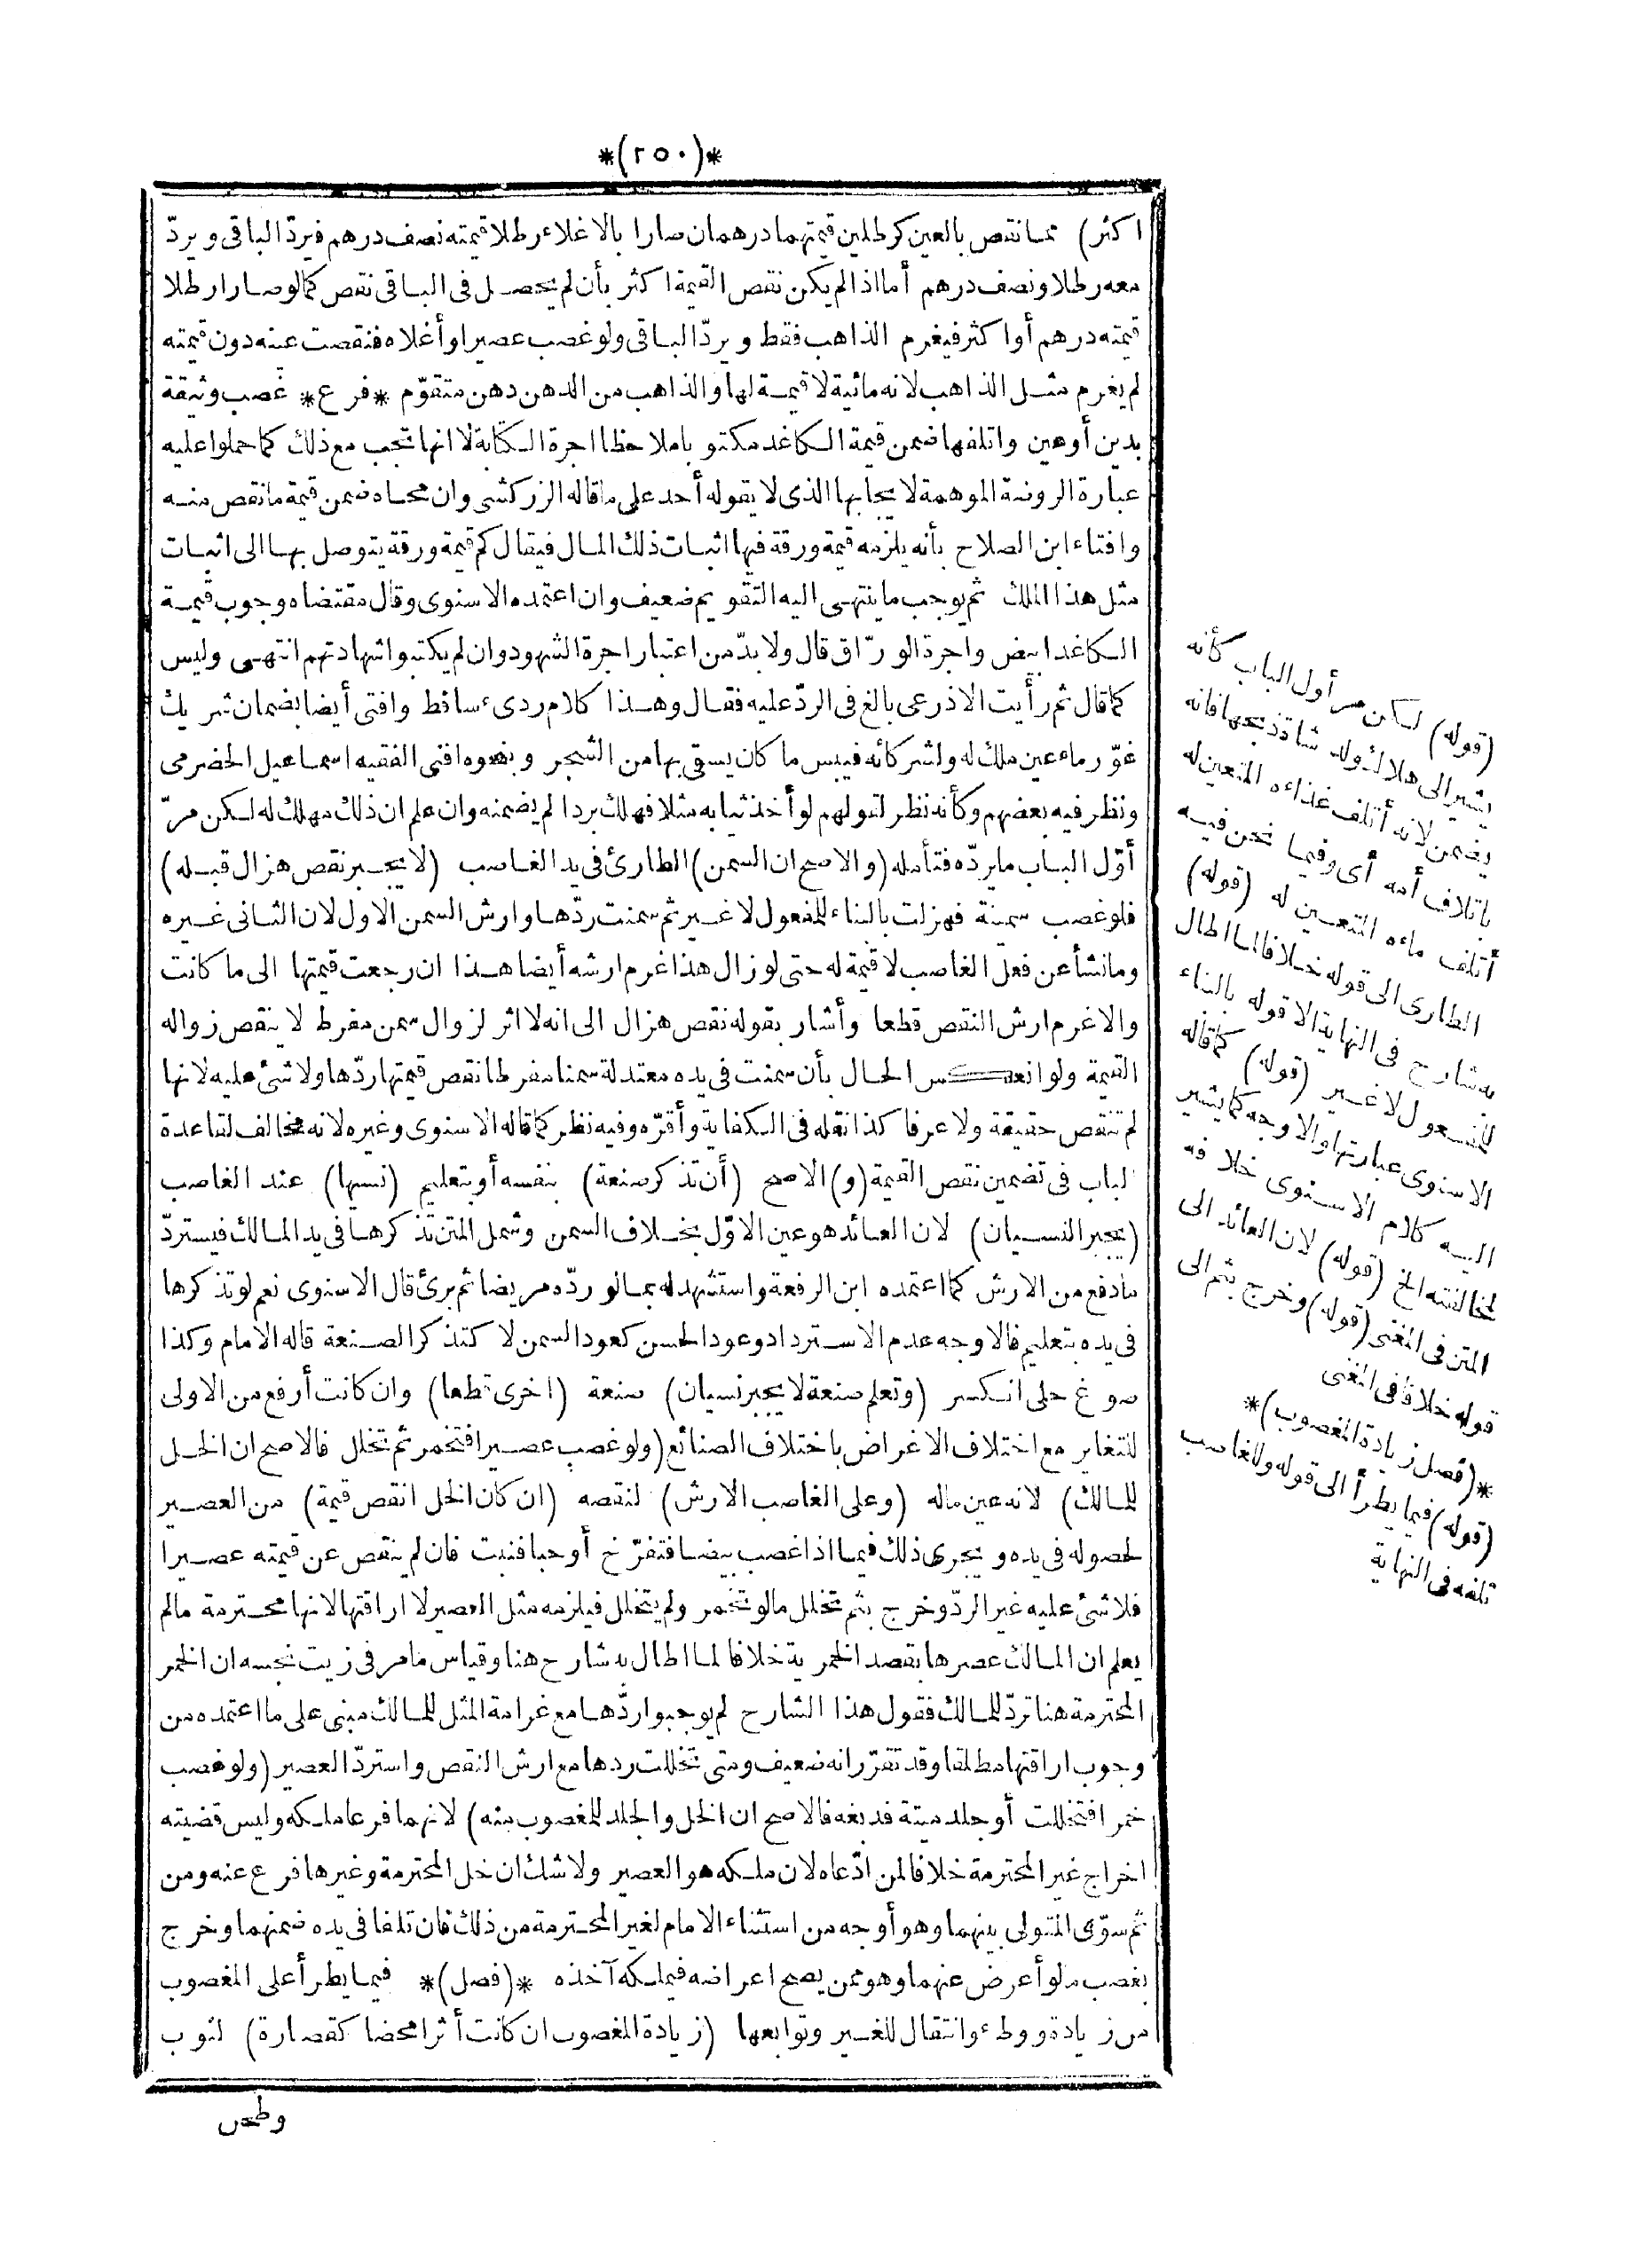 *(٢٥٠)*
اكثر) مما نقص بالعين كرطلين قيمتهما درهمان صارا بالاغلاء رطلا قيمته نصف درهم فيردّ الباقى ويردّ
معه رطلا ونصف درهم أما اذا لم يكن نقص القيمة اكثر بأن لم يحصل فى الباقى نقص كما لو صارا رطلا
قيمته درهم أو اكثر فيغرم الذاهب فقط ويردّ الباقى ولو غصب عصيرا وأغلاه فنقصت عينه دون قيمته
لم يغرم مثل الذاهب لانه مائية لا قيمة لها والذاهب من الدهن دهن متقوّم *فرع* غصب وثيقة
بدين أو عين واتلفها ضمن قيمة الكاغد مكتوبا ملاحظا اجرة الكتابة لا انها تجب مع ذلك كما حملوا عليه
عبارة الروضة الموهمة لايجابها الذى لا يقوله أحد على ما قاله الزركشى وان محاه ضمن قيمة ما نقص منه
وافتاء ابن الصلاح بأنه يلزمه قيمة ورقة فيها اثبات ذلك المال فيقال كم قيمة ورقة يتوصل بها الى اثبات
مثل هذا الملك ثم يوجب ما ينتهى اليه التقويم ضعيف وان اعتمده الاسنوى وقال مقتضاه وجوب قيمة
الكاغد ابيض واجرة الورّاق قال ولا بدّ من اعتبار اجرة الشهود وان لم يكتبوا شهادتهم انتهى وليس
كما قال ثم رأيت الاذرعى بالغ فى الردّ عليه فقال وهذا كلام ردىء ساقط وافتى أيضا بضمان شريك
غوّر ماء عين ملك له ولشركائه فيبس ما كان يسقى بها من الشجر وبنحوه افتى الفقيه اسماعيل الحضرمى
ونظر فيه بعضهم وكأنه نظر لقولهم لو أخذ ثيابه مثلا فهلك بردا لم يضمنه وان علم ان ذلك مهلك له لكن مرّ
أوّل الباب ما يردّه فتأمله (والاصح ان السمن) الطارئ فى يد الغاصب (لا يجبر نقص هزال قبله)
فلو غصب سمينة فهزلت بالبناء للمفعول لا غير ثم سمنت ردّها وارش السمن الاول لان الثانى غيره
وما نشأ عن فعل الغاصب لا قيمة له حتى لو زال هذا غرم ارشه أيضا هذا ان رجعت قيمتها الى ما كانت
والا غرم ارش النقص قطعا وأشار بقوله نقص هزال الى انه لا اثر لزوال سمن مفرط لا ينقص زواله
القيمة ولو انعكس الحال بأن سمنت فى يده معتدلة سمنا مفرطا نقص قيمتها ردّها ولا شئ عليه لانها
لم تنقص حقيقة ولا عرفا كذا نقله فى الكفاية وأقرّه وفيه نظر كما قاله الاسنوى وغيره لانه مخالف لقاعدة
الباب فى تضمين نقص القيمة (و) الاصح (أن تذكر صنعة) بنفسه أو بتعليم (نسيها) عند الغاصب
(يجبر النسيان) لان العائد هو عين الاوّل بخلاف السمن وشمل المتن تذكرها فى يد المالك فيستردّ
ما دفع من الارش كما اعتمده ابن الرفعة واستشهد له بما لو ردّه مريضا ثم برئ قال الاسنوى نعم لو تذكرها
فى يده بتعليم فالاوجه عدم الاسترداد وعود الحسن كعود السمن لا كتذكر الصنعة قاله الامام وكذا
صوغ حلى انكسر (وتعلم صنعة لا يجبر نسيان) صنعة (اخرى قطعا) وان كانت أرفع من الاولى
للتغاير مع اختلاف الاغراض باختلاف الصنائع (ولو غصب عصيرا فتخمر ثم تخلل فالاصح ان الخل
للمالك) لانه عين ماله (وعلى الغاصب الارش) لنقصه (ان كان الخل انقص قيمة) من العصير
لحصوله فى يده ويجرى ذلك فيما اذا غصب بيضا فتفرّخ أو حبا فنبت فان لم ينقص عن قيمته عصيرا
فلا شئ عليه غير الردّ وخرج بثم تخلل ما لو تخمر ولم يتخلل فيلزمه مثل العصير لا اراقتها لانها محترمة ما لم
يعلم ان المالك عصرها بقصد الخمرية خلافا لما اطال به شارح هنا وقياس ما مر فى زيت نجسه ان الخمر
المحترمة هنا تردّ للمالك فقول هذا الشارح لم يوجبوا ردّها مع غرامة المثل للمالك مبنى على ما اعتمده من
وجوب اراقتها مطلقا وقد تقرّر انه ضعيف ومتى تخللت ردها مع ارش النقص واستردّ العصير (ولو غصب
خمرا فتخللت أو جلد ميتة فدبغه فالاصح ان الخل والجلد للمغصوب منه) لانهما فرعا ملكه وليس قضيته
اخراج غير المحترمة خلافا لمن ادّعاه لان ملكه هو العصير ولا شك ان خل المحترمة وغيرها فرع عنه ومن
ثم سوّى المتولى بينهما وهو أوجه من استثناء الامام لغير المحترمة من ذلك فان تلفا فى يده ضمنهما وخرج
بغصب ما لو أعرض عنهما وهو ممن يصح اعراضه فيملكه آخذه *(فصل)* فيما يطرأ على المغصوب
من زيادة ووطء وانتقال للغير وتوابعها (زيادة المغصوب ان كانت أثرا محضا كقصارة) لثوب
وطحن
(قوله) لكن مر أول الباب كأنه
يشير الى هلاك ولد شاة ذبحها فانه
يضمن لانه أتلف غذاءه المتعين له
باتلاف أمه أى وفيما نحن فيه
أتلف ماءه المتعين له (قوله)
الطارى الى قوله خلافا لما اطال
به شارح فى النهاية الا قوله بالبناء
للمفعول لا غير (قوله) كما قاله
الاسنوى عبارتها والاوجه كما يشير
اليه كلام الاسنوى خلافه
لمخالفته الخ (قوله) لان العائد الى
المتن فى المغنى (قوله) وخرج بثم الى
قوله خلافا فى المغنى
*(فصل زيادة المغصوب)*
(قوله) فيما يطرأ الى قوله وللغاصب
تلفه فى النهاية